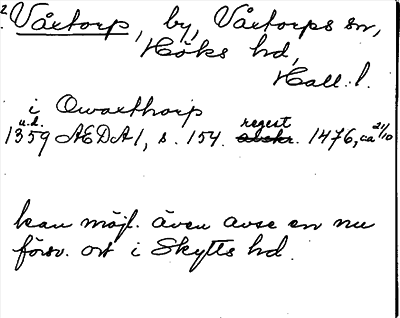 2. Våxtorp, by, Våxtorps sn,
Höks hd,
Hall. l.
i Qwaxthorp
u.d.
1359 AEDA 1, s. 154. regest 1476, ca 21/10
kan möjl. även avse en nu
försv. ort i Skytts hd.